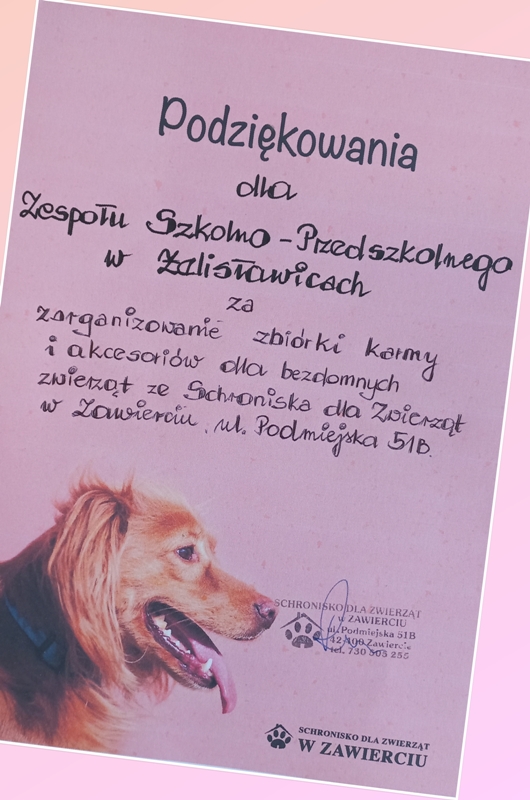 Podziękowania
dla
Zespołu Szkolno-Przedszkolnego
w Zdzisławicach
za
zorganizowanie zbiórki karmy
i akcesoriów dla bezdomnych
zwierząt ze Schroniska dla Zwierząt
w Zawierciu, ul. Podmiejska 51B.
SCHRONISKO DLA ZWIERZĄT
w ZAWIERCIU
ul. Podmiejska 51B
42-400 Zawiercie
tel. 730 505 255
SCHRONISKO DLA ZWIERZĄT
W ZAWIERCIU